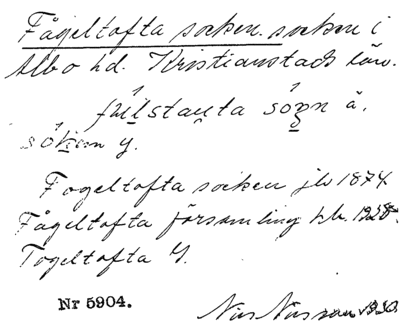 Fågeltofta socken. socken i
Albo hd. Kristianstads län.
fúlstauta sógn ä.
sókun y.
Fogeltofta socken jb 1874
Fågeltofta församling kb. 1928.
Togeltofta Y.
Nr 5904.
Nils Nilsson 1930.